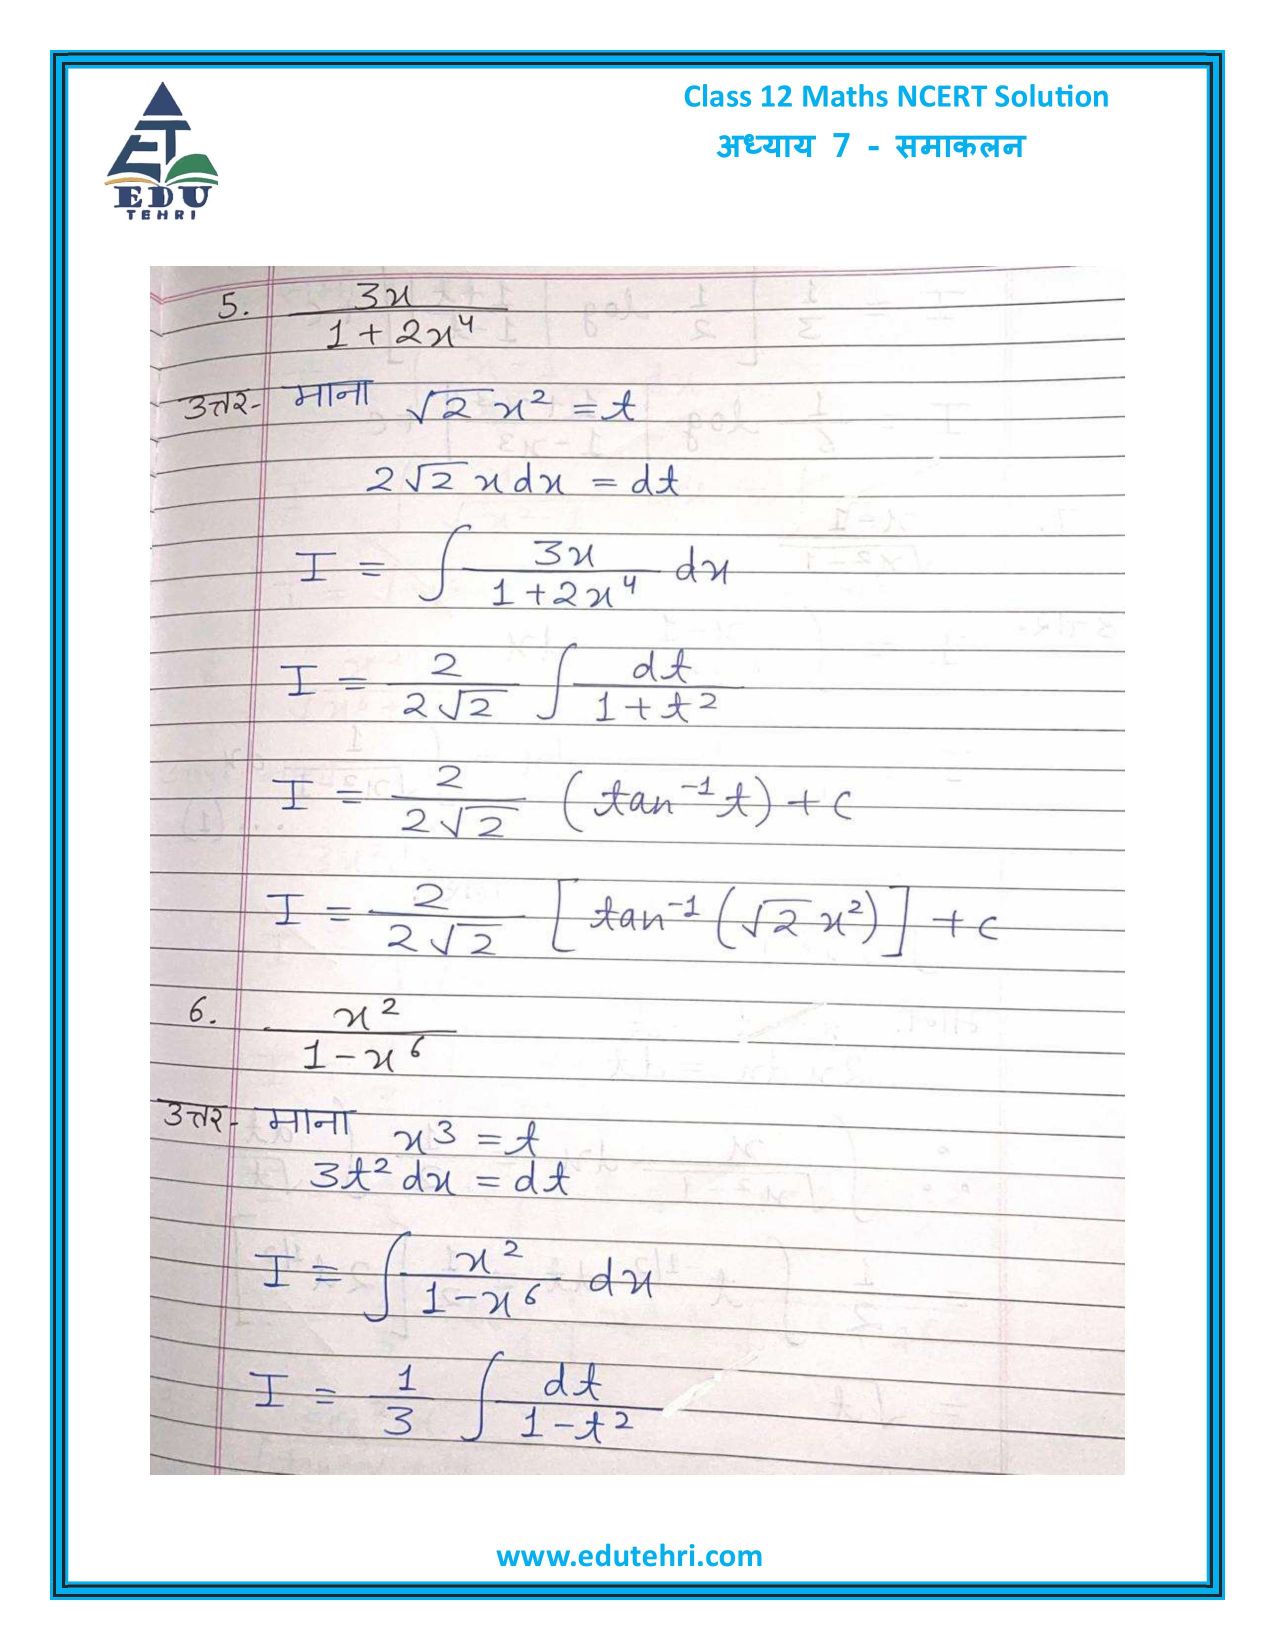 Class 12 Maths NCERT Solution
अध्याय 7 - समाकलन
EDU
TEHRI
5. 3x / 1 + 2x⁴
उत्तर- माना √2 x² = t
2√2 x dx = dt
I = ∫ 3x / 1+2x⁴ dx
I = 2 / 2√2 ∫ dt / 1+t²
I = 2 / 2√2 (tan⁻¹t) + c
I = 2 / 2√2 [tan⁻¹(√2 x²)] + c
6. x² / 1-x⁶
उत्तर- माना x³ = t
3t² dx = dt
I = ∫ x² / 1-x⁶ dx
I = 1/3 ∫ dt / 1-t²
www.edutehri.com